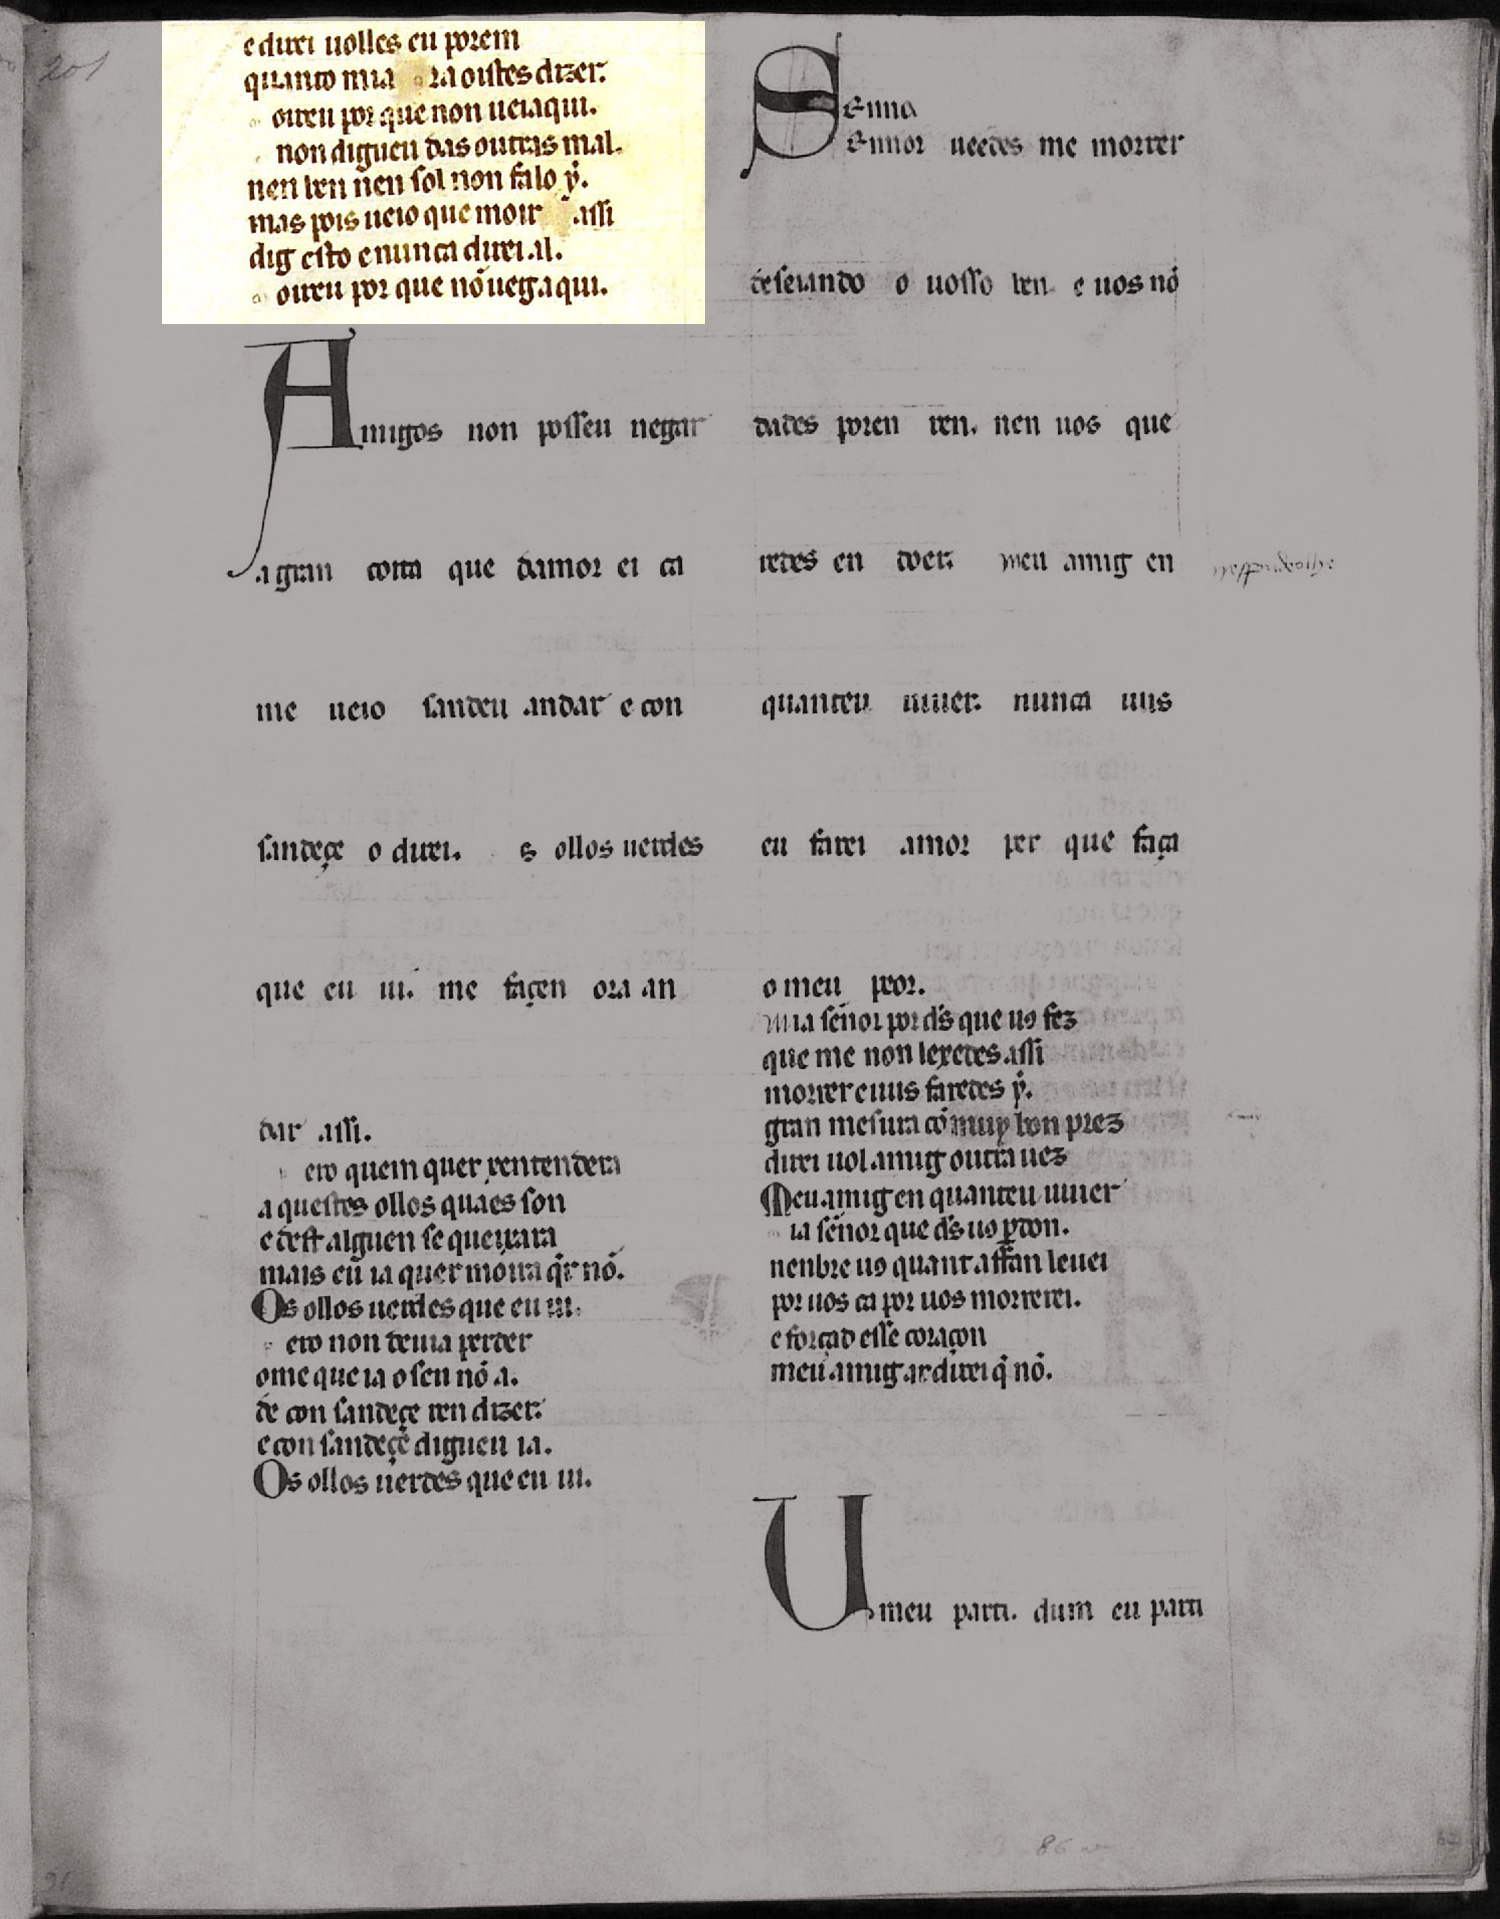 201
e direi uolles eu porem
quanto mia ora oistes dizer.
oireu por que non ueiaqui.
non digueu das outras mal.
nen ben nen sol non falo ẏ.
mas pois ueio que moir assi
dig esto e nunca direi al.
oireu por que nõ uegaqui.
Amigos non posseu negar
a gran coita que damor ei ca
me ueio sandeu andar e con
sandeçe o direi. s ollos uerdes
que eu ui. me façen ora an
dar assi.
ero quem quer xentendera
aquestes ollos quaes son
e dest alguen se queixara
mais eu ia quer moira q̃r nõ.
Os ollos uerdes que eu ui.
ero non deuia perder
ome que ia o sen nõ a.
de con sandeçe ren dizer.
e con sandeçe digueu ia.
Os ollos uerdes que eu ui.
Senna
Ennor ueedes me morrer
deseiando o uosso ben e uos nõ
dades poren ren. nen uos que
redes en doer. meu amig en
quanteu uiuer. nunca uus
eu farei amor per que faça
o meu peor.
mia señor por ds̃ que uꝯ fez
que me non lexedes assi
morrer e uus faredes ẏ.
gran mesura cõ muy bon prez
direi uol amig outra uez
Meu amig en quanteu uiuer
ia señor que ds̃ uꝯ ꝑdon.
nenbre uꝯ quant affan leuei
por uos ca por uos morrerei.
e forçad esse coraçon
meu amig ar direi q̃ nõ.
U meu parti. dum eu parti
86